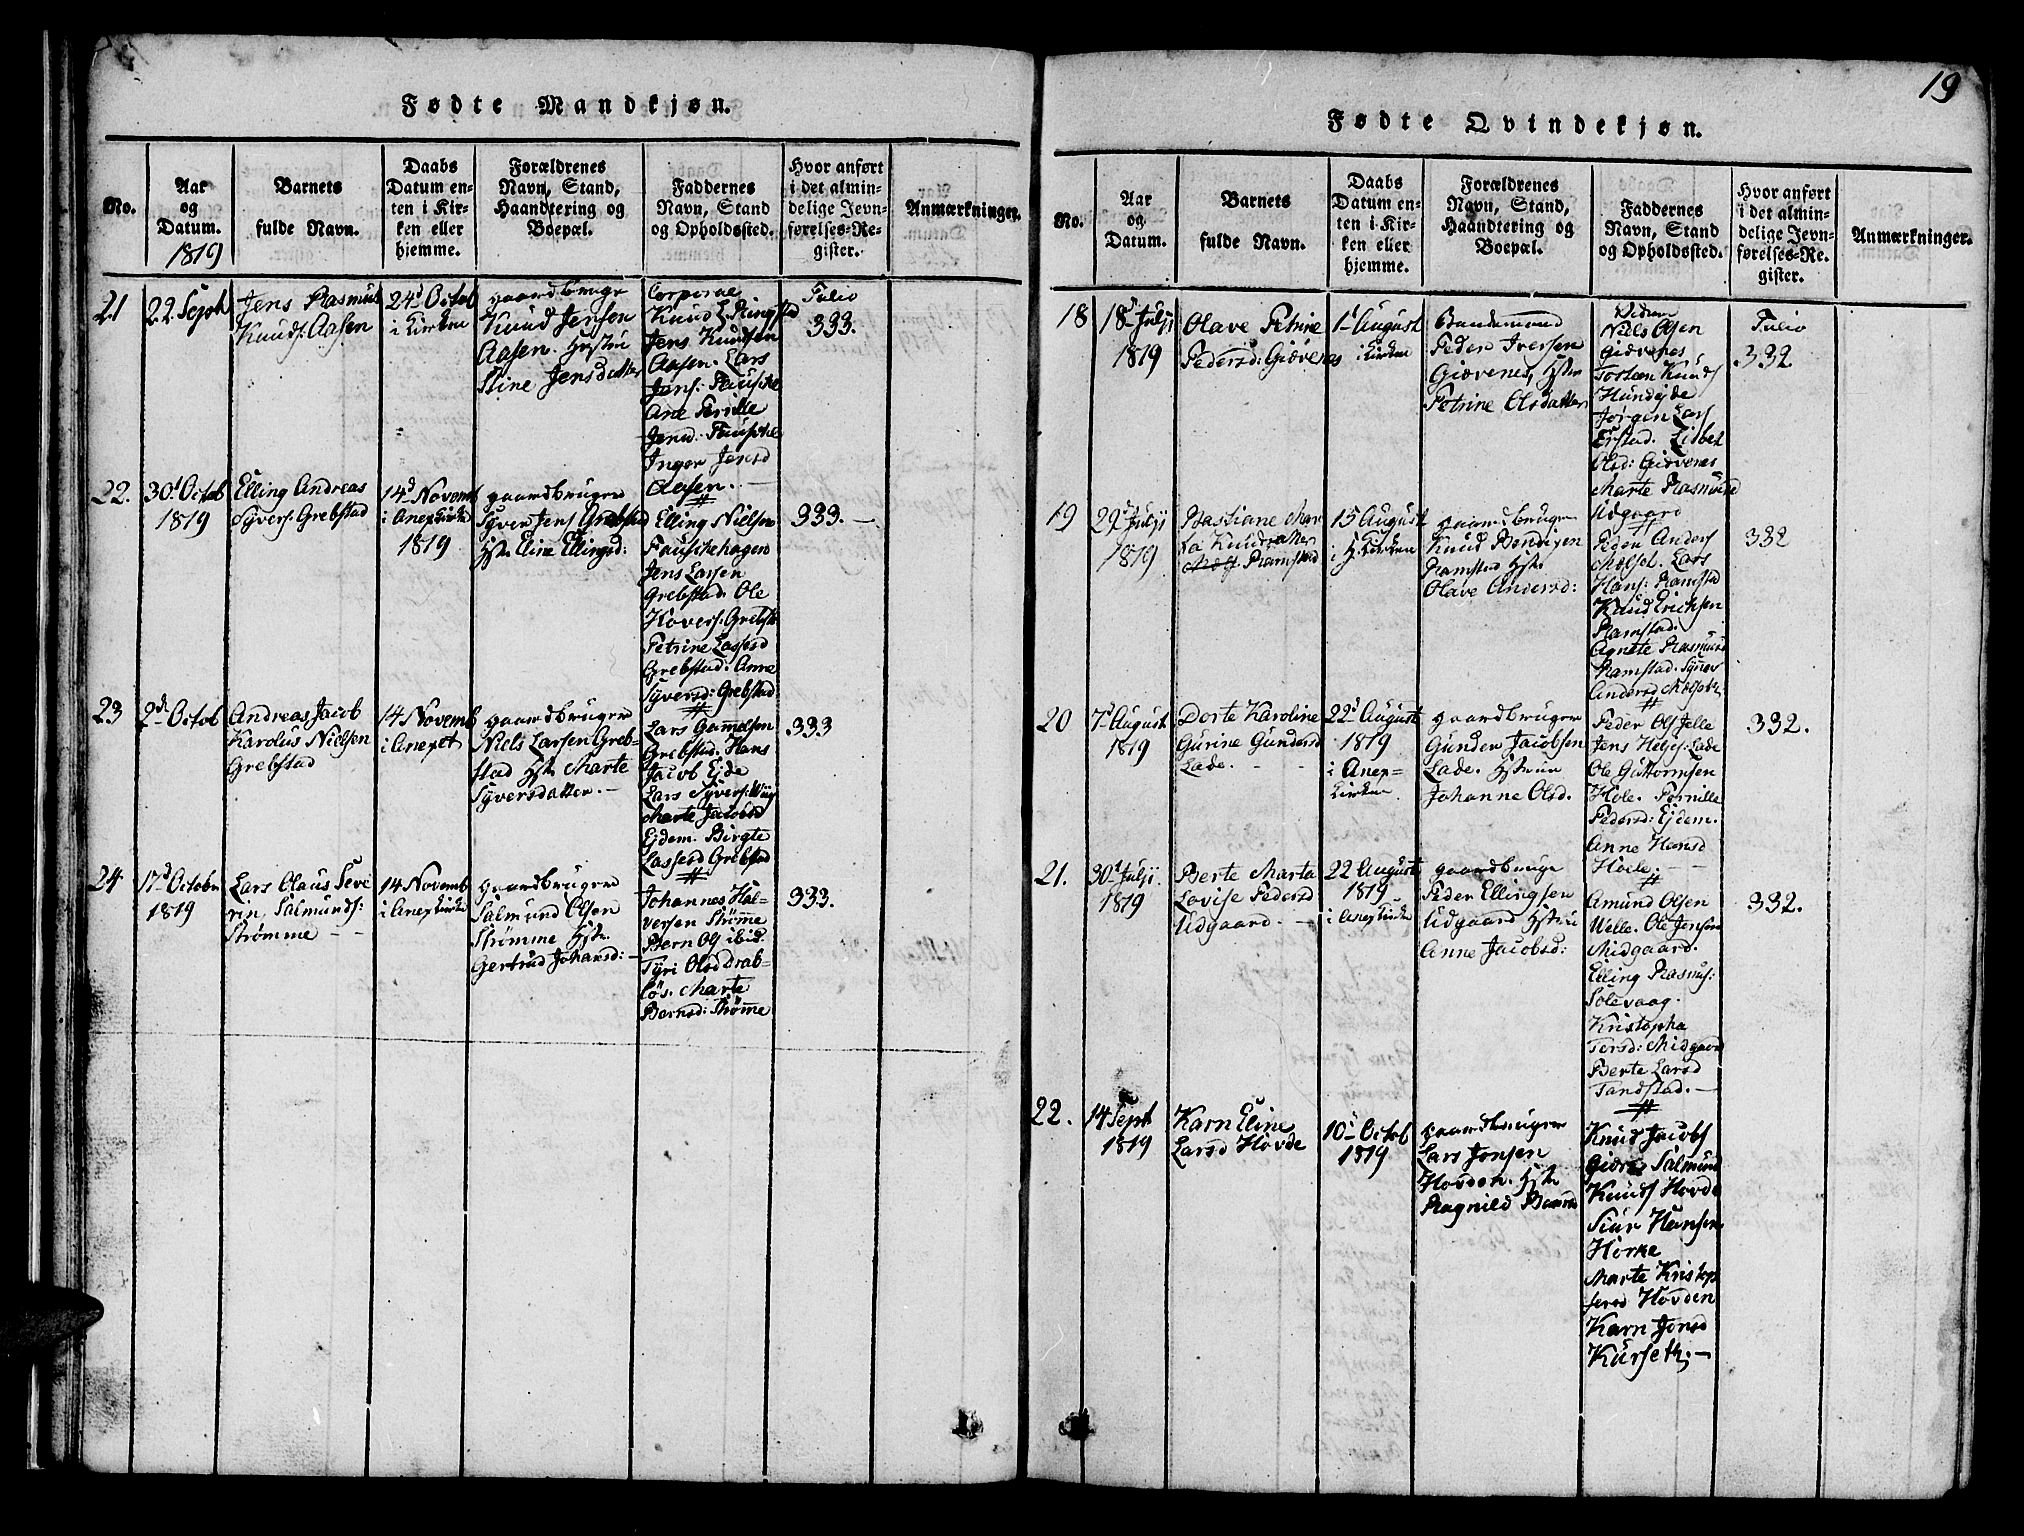 19
Fødte Mandkjøn.
No.
Aar
og
Datum.
1819
Barnets
fulde Navn.
Daabs
Datum en-
ten i Kir-
ken eller
hjemme.
Forældrenes
Navn, Stand,
Haandtering og
Boepæl.
Faddernes
Navn, Stand
og Opholdssted.
Hvor anført
i det almin-
delige Jevn-
førelses-Re-
gister.
Anmærkninger.
21
22 Sept
Jens Rasmus
Knuds: Aasen
24d Octob
i Kirken
gaardbruger
Knud Jensen
Aasen. Hustrue
Stine Jensdatter
Corporal
Knud L. Ringstad
Jens Knudsen
Aasen. Lars
Jens: Fauske
Ane Pernille
Jensd: Fauske
Inger Jensd
Aasen. —
Folio
333.
22.
30d Octob
1819
Elling Andreas
Syvers: Grebstad
14d Novemb
i Anex Kirke
1819
gaardbruger
Syver Jens Grebstad
Hstr. Eline Ellingsd:
Elling Nielsen
Fauskehagen
Jens Lassen
Grebstad. Ole
Hovers: Grebst
Petrine Lassesd
Grebstad. Anne
Syversd: Grebstad
333. —
23
2d Octob
Andreas Jacob
Karolus Nielsen
Grebstad
14 Novemb
i Anexet
gaardbruger
Niels Larsen Greb-
stad Hstr. Marte
Syversdatter. —
Lars Gammelsen
Grebstad. Hans
Jacob Ejde
Lars Syvers: Wiig
Marte Jacobsd
Ejdem. Birgte
Lassesd Grebstad
333
24
17d Octobr
1819
Lars Olaus Seve
rin Salmunds:
Strømme —
14 Novemb
i Anex Kirke
gaardbruger
Salmund Olsen
Strømme Hstr.
Gertrud Johansd: —
Johannes Hal-
versen Strømme
Bern Ols ibid.
Tyri Olsd Drab-
løs. Marte
Bernsd: Strømme
333.
Fødte Qvindekjøn.
No.
Aar
og
Datum.
Barnets
fulde Navn.
Daabs
Datum en-
ten i Kir-
ken eller
hjemme.
Forældrenes
Navn, Stand,
Haandtering og
Boepæl.
Faddernes
Navn, Stand
og Opholdssted.
Hvor anført
i det almin-
delige Jevn-
førelses-Re-
gister.
Anmærkninger.
18
18d Julji
1819
Olave Petrine
Pedersd: Giævenes
1d August
i Kirken
Bondemand
Peder Iversen
Giævenes, Hstr.
Petrine Olsdatter
Niels Olsen
Giævenes
Tosten Knuds
Hundejde
Jørgen Lars
Erstad. Lisbet
Olsd: Giævenes
Marte Rasmusd
Udgaard
Folio
332.
19
29d Julji
1819
Bastiane Mar
ta Knudsdatter
Ramstad
15 August
i H. Kirken
gaardbruger
Knud Bendixen
Ramstad Hstr.
Olave Andersd:
Peden Anders
Melset. Lars
Hans: Ramstad
Knud Erichsen
Ramstad.
Agnete Rasmusd
Ramstad. Synev
Andersd Melset.
332
20
7d August
1819
Dorte Karoline
Gurine Gundersd
Lade. —
22d August
1819
i Anex-
kirken
gaardbruger
Gunder Jacobsen
Lade. Hstrue
Johanne Olsd.
Peder Ols Jelle
Jens Helges: Lade
Ole Guttormsen
Hole. Pernille
Pedersd: Ejdem.
Anne Hansd
Hoele. —
332.
21.
30d Julji.
1819
Berte Marta
Lovise Pedersd
Udgaard. —
22 August
1819
i Anex Kirke
gaardbruge
Peder Ellingsen
Udgaard Hstrue
Anne Jacobsd:
Amund Olsen
Welle. Ole Jensen
Midgaard.
Elling Rasmus:
Solevaag.
Kristopha
Torsd: Midgaard
Berte Larsd
Tandstad. —
332.
22.
14 Sept
1819
Karn Eline
Larsd Hovde
10d Octob
1819
gaardbruger
Lars Jonsen
Hovden. Hstr.
Ragnild
Knud Jacobs
Giære Salmund
Knuds Hovde
Siur Hansen
Hørke
Marte Kristop
fersd Hovden
Karn Jonsd
Kurseth. —